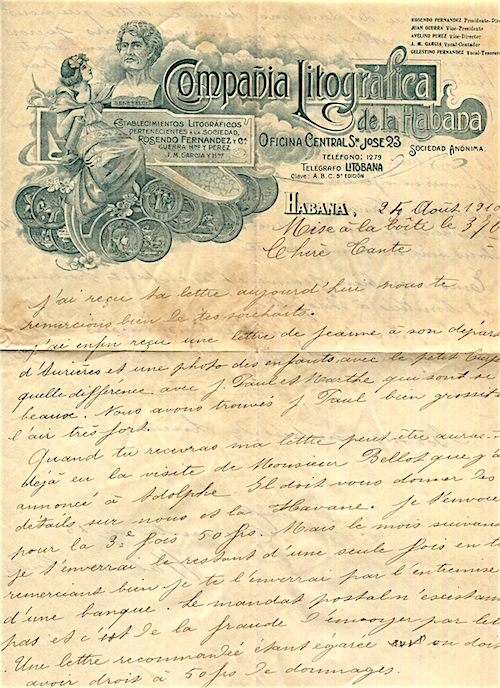 ROSENDO FERNANDEZ Presidente-Dir
JUAN GUERRA Vice-Presidente
AVELINO PEREZ Vice-Director
J. M. GARCIA Vocal-Contador
CELESTINO FERNANDEZ Vocal-Tesorero
Compañia Litográfica
de la Habana
SENEFELDER
ESTABLECIMIENTOS LITOGRÁFICOS
PERTENECIENTES Á LA SOCIEDAD,
ROSENDO FERNANDEZ Y Ca
GUERRA Hnos Y PEREZ
J. M. GARCIA Y Hno
OFICINA CENTRAL Sn JOSE 23
SOCIEDAD ANÓNIMA.
TELÉFONO: 1279
TELÉGRAFO LITOBANA
Clave: A. B. C. 5ª EDICIÓN
HABANA, 24 Août 1910
Mise à la boîte le 3/6
Chère Tante
j'ai reçu ta lettre aujourd'hui nous te
remercions bien de tes souhaits.
J'ai enfin reçu une lettre de Jeanne à son départ
et une photo des enfants avec le petit
quelle différence avec J. Paul et Marthe qui sont si
beaux. Nous avons trouvés J. Paul bien grossit
l'air très fort.
Quand tu recevras ma lettre peut être auras-t
déjà eu la visite de Monsieur Bellot que j'a
annoncé à Adolphe. Il doit vous donner des
détails sur nous et la Havane. Je t'envoie
pour la 3e fois 50 frs. Mais le mois suivant
je t'enverrai le restant d'une seule fois en te
remerciant bien je te l'enverrai par l'entremise
d'une banque. Le mandat postal n'existant
pas et c'est de la fraude d'envoyer par let
Une lettre recommandée étant égarée on doit
avoir droit à 50 frs de dommages.